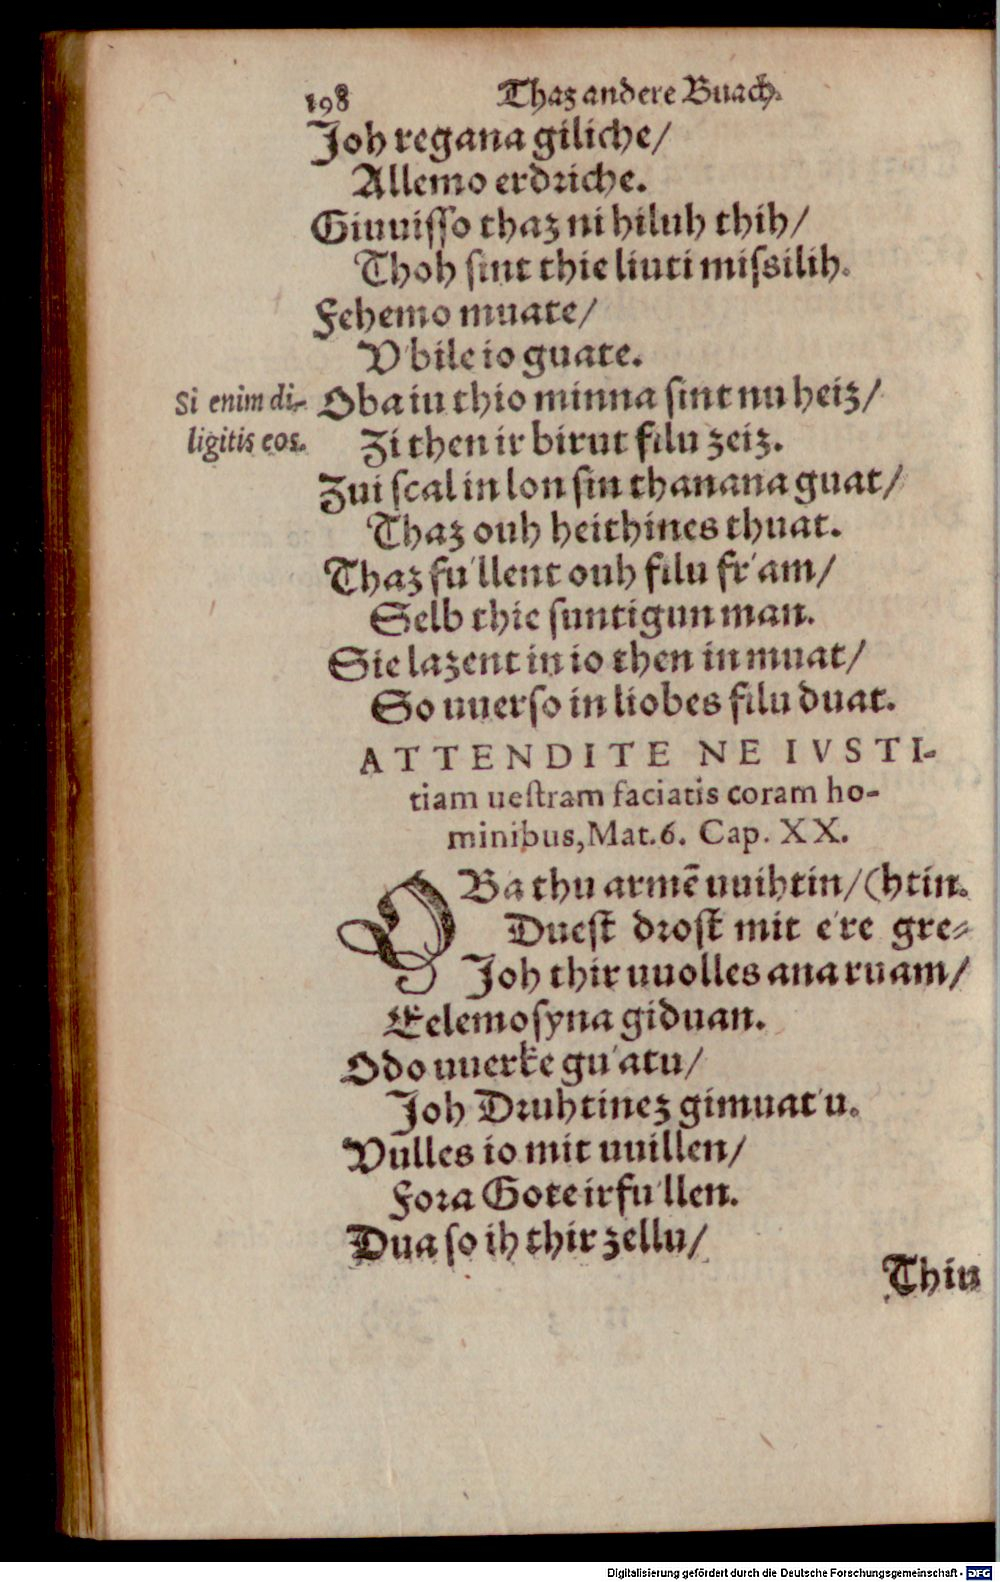 198 Thaz andere Buach.
Joh regana giliche/
Allemo erdriche.
Giuuisso thaz ni hiluh thih/
Thoh sint thie liuti missilih.
Fehemo muate/
V'bile io guate.
Si enim di-
ligitis eos.
Oba iu thio minna sint nu heiz/
Zi then ir birut filu zeiz.
Zui scal in lon sin thanana guat/
Thaz ouh heithines thuat.
Thaz fu'llent ouh filu fr'am/
Selb thie suntigun man.
Sie lazent in io then in muat/
So uuerso in liobes filu duat.
ATTENDITE NE IVSTI-
tiam uestram faciatis coram ho-
minibus, Mat. 6. Cap. XX.
OBa thu armē uuihtin/ (htin.
Duest drost mit e're gre-
Joh thir uuolles ana ruam/
Eelemosyna giduan.
Odo uuerke gu'atu/
Joh Druhtinez gimuat'u.
Vulles io mit uuillen/
Fora Gote irfu'llen.
Dua so ih thir zellu/
Thin
Digitalisierung gefördert durch die Deutsche Forschungsgemeinschaft - DFG